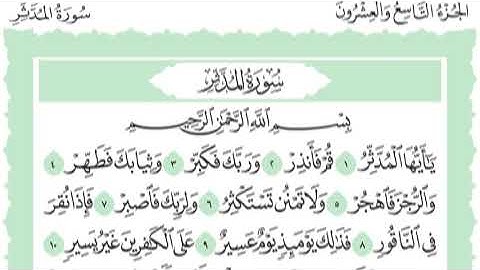 الجزء التاسع والعشرون سورة المدثر
سُورَةُ المُدَّثِّرِ
بِسْمِ اللَّهِ الرَّحْمَٰنِ الرَّحِيمِ
يَٰٓأَيُّهَا ٱلْمُدَّثِّرُ ١ قُمْ فَأَنذِرْ ٢ وَرَبَّكَ فَكَبِّرْ ٣ وَثِيَابَكَ فَطَهِّرْ ٤
وَٱلرُّجْزَ فَٱهْجُرْ ٥ وَلَا تَمْنُن تَسْتَكْثِرُ ٦ وَلِرَبِّكَ فَٱصْبِرْ ٧ فَإِذَا نُقِرَ
فِى ٱلنَّاقُورِ ٨ فَذَٰلِكَ يَوْمَئِذٍ يَوْمٌ عَسِيرٌ ٩ عَلَى ٱلْكَٰفِرِينَ غَيْرُ يَسِيرٍ ١٠